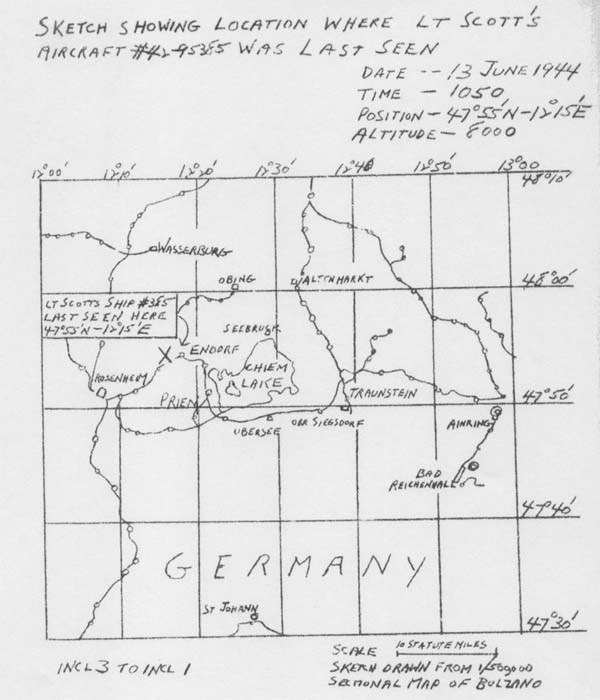 SKETCH SHOWING LOCATION WHERE LT SCOTT'S
AIRCRAFT #42-95385 WAS LAST SEEN
DATE -- 13 JUNE 1944
TIME - 1050
POSITION - 47°55'N-12°15'E
ALTITUDE - 8000
12°00' 12°10' 12°20' 12°30' 12°40' 12°50' 13°00
48°10'
WASSERBURG
OBING
ALTENMARKT
48°00'
LT SCOTT'S SHIP #385
LAST SEEN HERE
47°55'N-12°15'E
SEEBRUCK
X
ENDORF
CHIEM
LAKE
ROSENHEIM
PRIEN
TRAUNSTEIN
47°50'
UBERSEE
OBR SIEGSDORF
AINRING
BAD
REICHENHALL
47°40'
GERMANY
ST JOHANN
47°30'
INCL 3 TO INCL 1
SCALE 10 STATUTE MILES
SKETCH DRAWN FROM 1/500000
SECTIONAL MAP OF BOLZANO